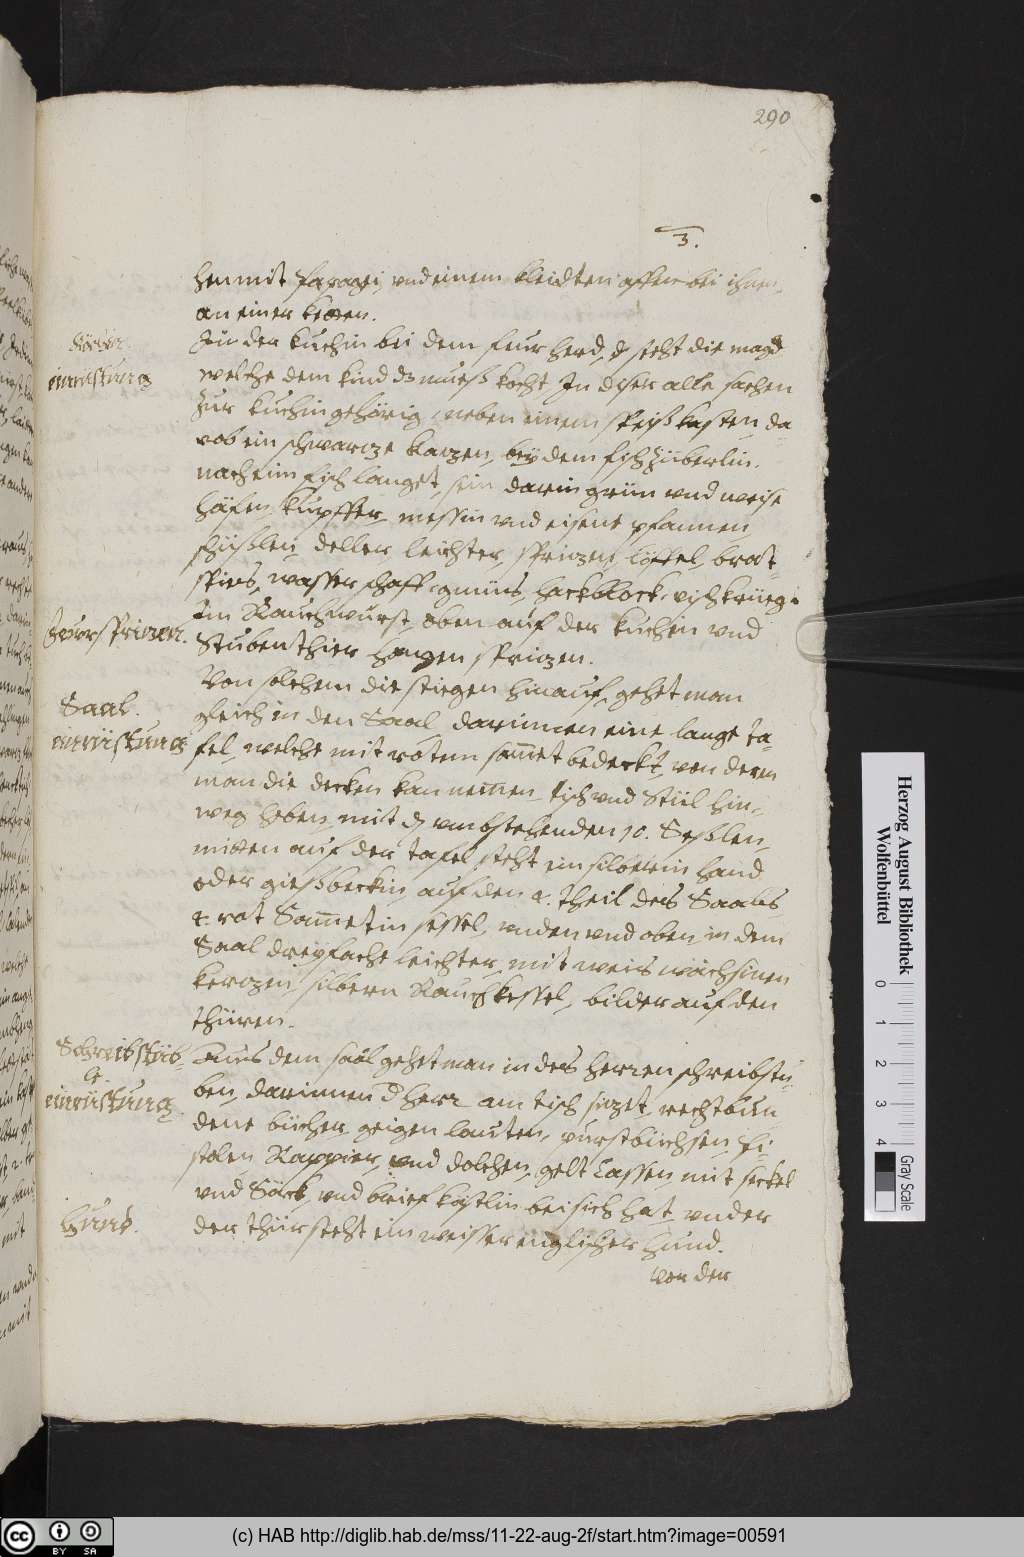 290
3.
hen mit papagei, vnd einem kleidten affen bei ihnen,
an einer ketten.
Kuchin
einrüstung
In der kuchin bei dem feur herd, steht die magd
welche dem kind dz mueß kocht, In diser alle sachen
zur kuchin gehörig, neben einem speißkasten, da-
rob ein schwartze kazen, bey dem fischzüberlin,
nach eim fisch langet, sein darin grün vnd weise
häfen, kupffer, messin vnd eisene pfannen,
schüßlen, deller leichter, sprizen, löffel, brat-
spies, wasser schaff, gmüns, hackblock, vischkrüeg,
Feursprizen.
Im Rauch würst, oben auf der kuchin vnd
Stubenthier hangen sprizen.
Von solchem die stiegen hinauf, gehet man
Saal
einrüstung
gleich in den Saal, darinnen eine lange ta-
fel, welche mit rotem sammet bedeckt, von deren
man die decken kan nemen, tisch vnd Stül hin-
weg heben, mit vmbstehenden 10. Seßlen,
mitten auf der tafel steht ein silberin hand
oder gießbeckin, auf den 4. theil des Saals,
4. rot Sammetin sessel, vnden vnd oben in dem
Saal dreyfache leichter, mit weis wächsinen
kerzen, silbern Rauchkessel, bilder auf den
thüren.
Schreibstüb-
einrüstung
Aus dem saal gehet man in des herren schreibstu-
ben, darinnen der herr am tisch sizet, recht bun
dene bücher, geigen lauten, purstbüchsen, Pi-
stolen Rappier, vnd dolchen, gelt Cassen mit seckel
vnd Säck, vnd brief kästlin bei sich hat, vnder
Hund.
der thür steht ein weisser englischer hund.
von der
Herzog August Bibliothek
Wolfenbüttel
0 1 2 3 4
Gray Scale
BY SA
(c) HAB http://diglib.hab.de/mss/11-22-aug-2f/start.htm?image=00591